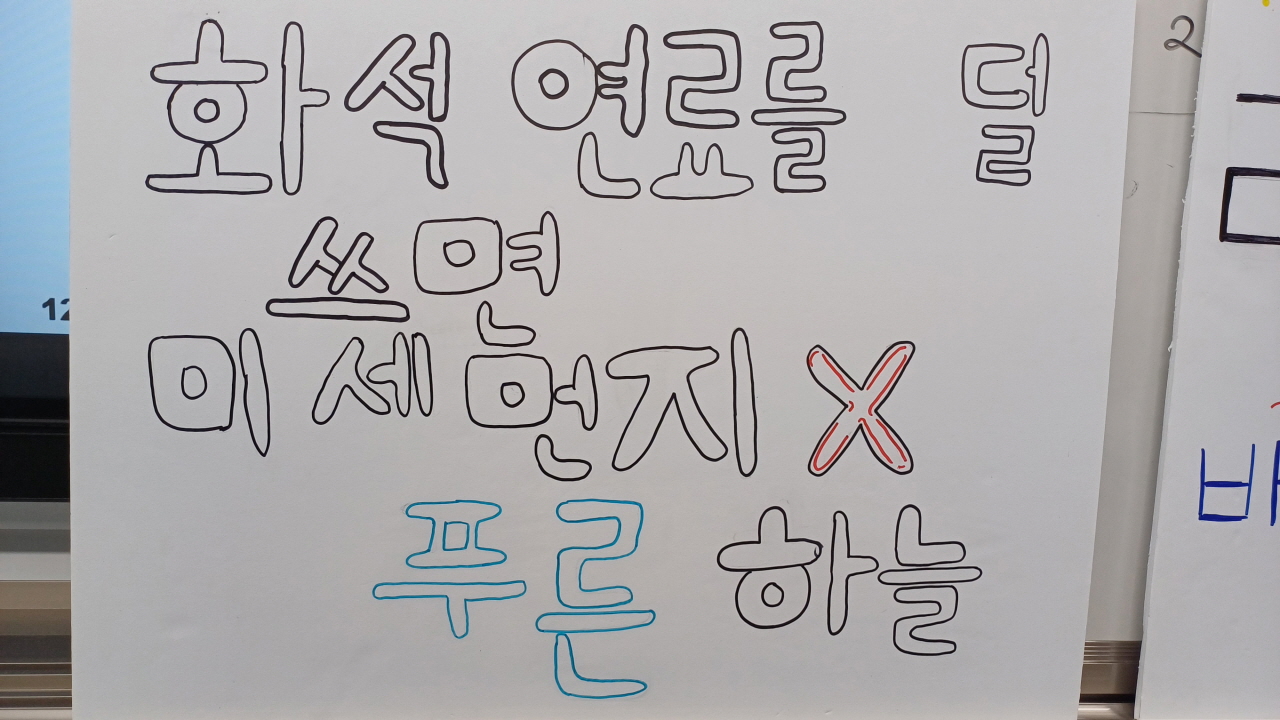 화석 연료를 덜
쓰면
미세먼지 X
푸른 하늘
12
2